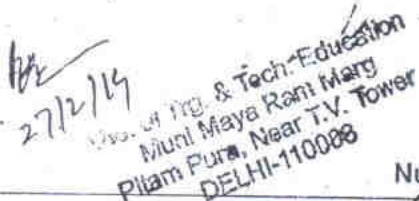 27/2/19
of Trg. & Tech. Education
Muni Maya Ram Marg
Pitam Pura, Near T.V. Tower
DELHI-110088
Nu